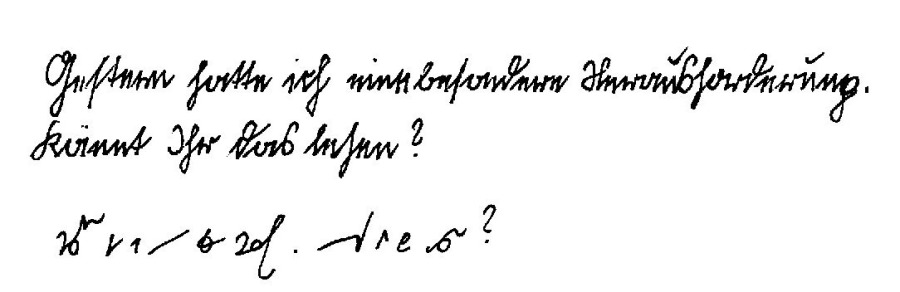 Gestern hatte ich eine besondere Herausforderung.
Könnt Ihr das lesen?